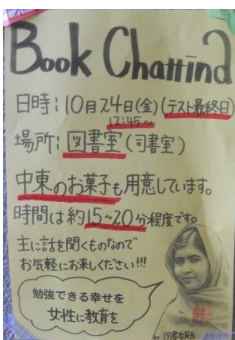 Book Chatting
日時:10月24日(金)(テスト最終日)
12:45~
場所:図書室(司書室)
中東のお菓子も用意しています。
時間は約15~20分程度です。
主に話を聞くものなので
お気軽にお来しください!!!
勉強できる幸せを
女性に教育を